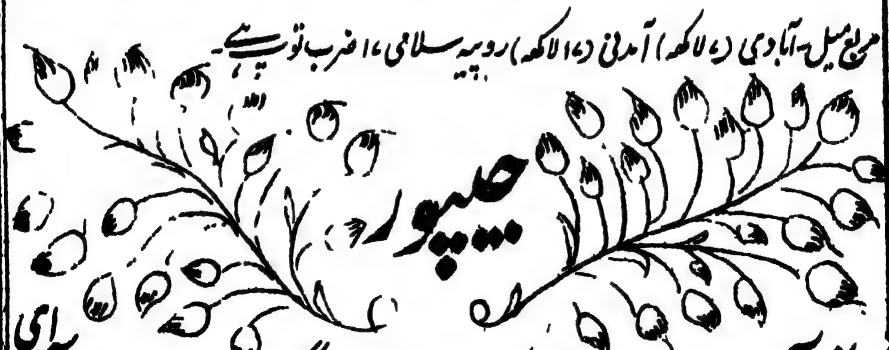 مربع میل۔ آبادی (۷ لاکھ) آمدنی (۱۷ لاکھ) روپیہ سلامی ۱۷ ضرب توپ ہے۔
جیپور